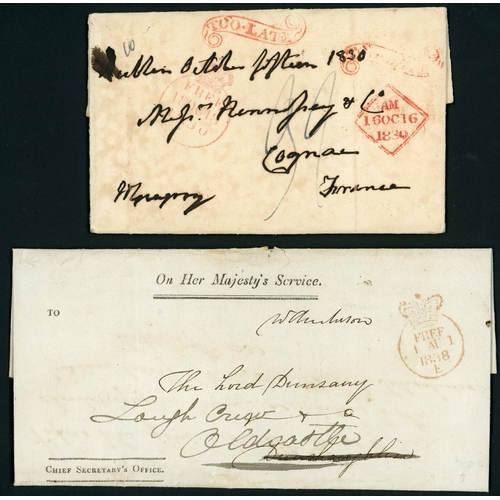 TOO·LATE
Dublin October fifteen 1830
FREE
Messrs Hennessey & Co
AM
16OC16
1830
Cognac
France
On Her Majesty's Service.
TO
FREE
1 AU 1
1838
E
The Lord Dunsany
Lough Crew
Oldcastle
Dunshaughlin
Chief Secretary's Office.